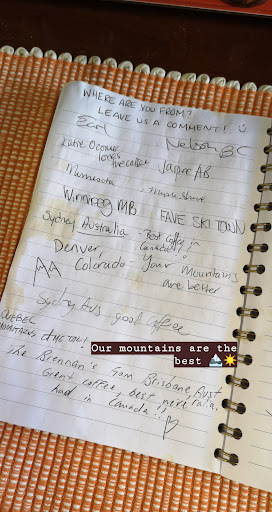 WHERE ARE YOU FROM?
LEAVE US A COMMENT! :)
Earl
Nelson BC
Katie
loves the coffee
Jasper AB
Minnesota
Winnipeg MB
FAVE SKI TOWN
Sydney Australia - Best Coffee in Canada!!
Denver,
Colorado - Your Mountains are better
Sydney Aus good coffee
QUEBEC
Our mountains are the best 🏔️☀️
The Brennan's from Brisbane, Aust
Great coffee, best we've
had in Canada!!